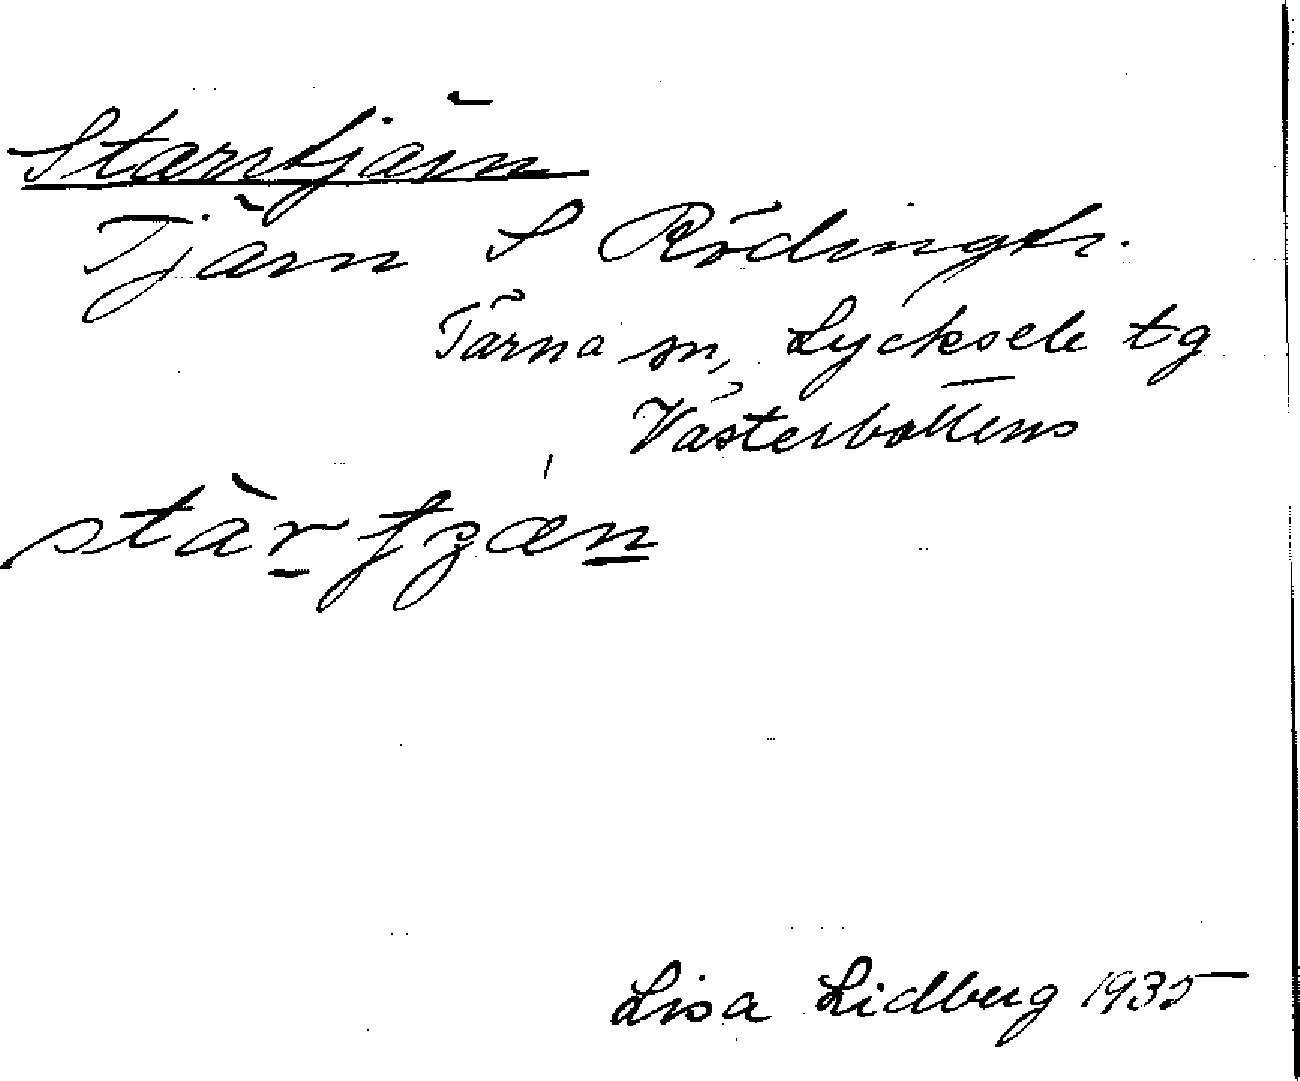 Starrtjärn
Tjärn S Rödingtr.
Tärna sn, Lycksele tg
Västerbottens
Lisa Lidberg 1935